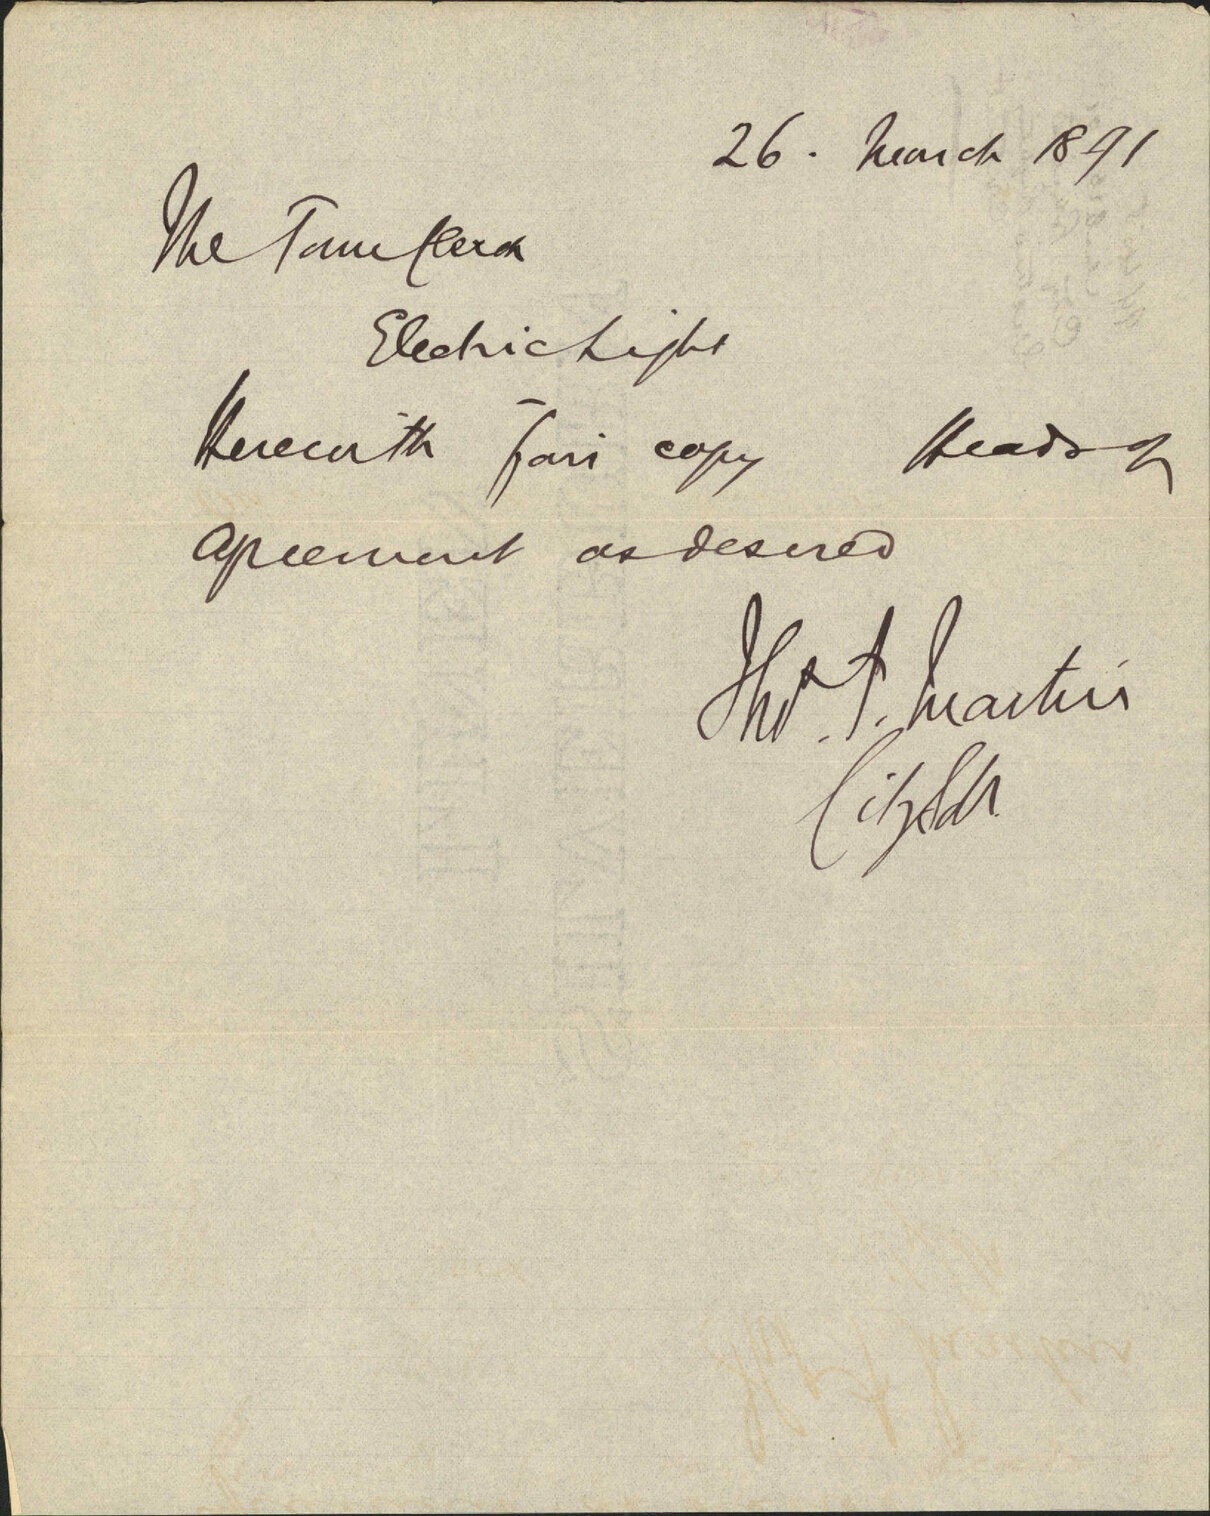 26. March 1891
The Town Clerk
Electric Light
Herewith fair copy Heads of
agreement as desired
Thos. P. Martin
City Solr.